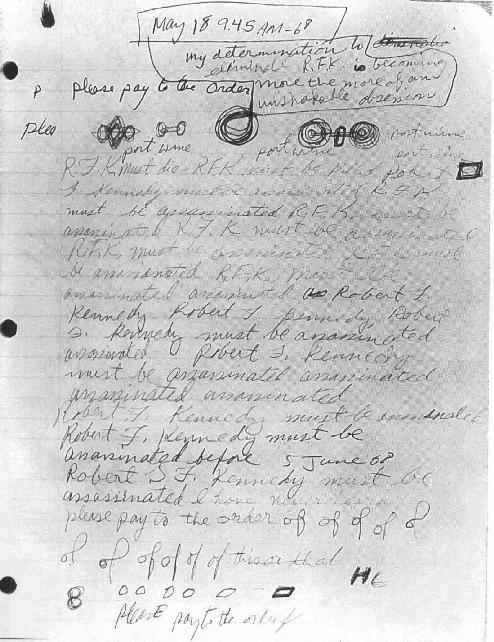 May 18 9.45 AM-68
my determination to
eliminate R.F.K. is becoming
more the more of an
unshakable obsession
p please pay to the order
plea
port wine port wine port wine
R.F.K. must die - RFK must be killed Robert
F. Kennedy must be assassinated R.F.K.
must be assassinated R.F.K. must be
assassinated R.F.K. must be assassinated
R.F.K. must be assassinated R.F.K. must
be assassinated R.F.K. must be
assassinated assassinated Robert F.
Kennedy Robert F. Kennedy Robert
F. Kennedy must be assassinated
assassinated Robert F. Kennedy
must be assassinated assassinated
assassinated assassinated
Robert F. Kennedy must be assassinated
Robert F. Kennedy must be
assassinated before 5 June 68
Robert F. Kennedy must be
assassinated I have never
please pay to the order of of of of of
of of of of of of this or that
8 00 00
please pay to the order of